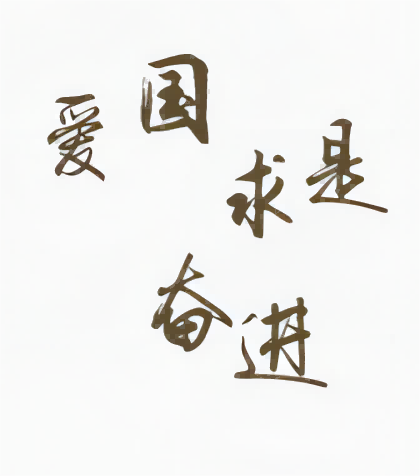 爱国
求是
奋进